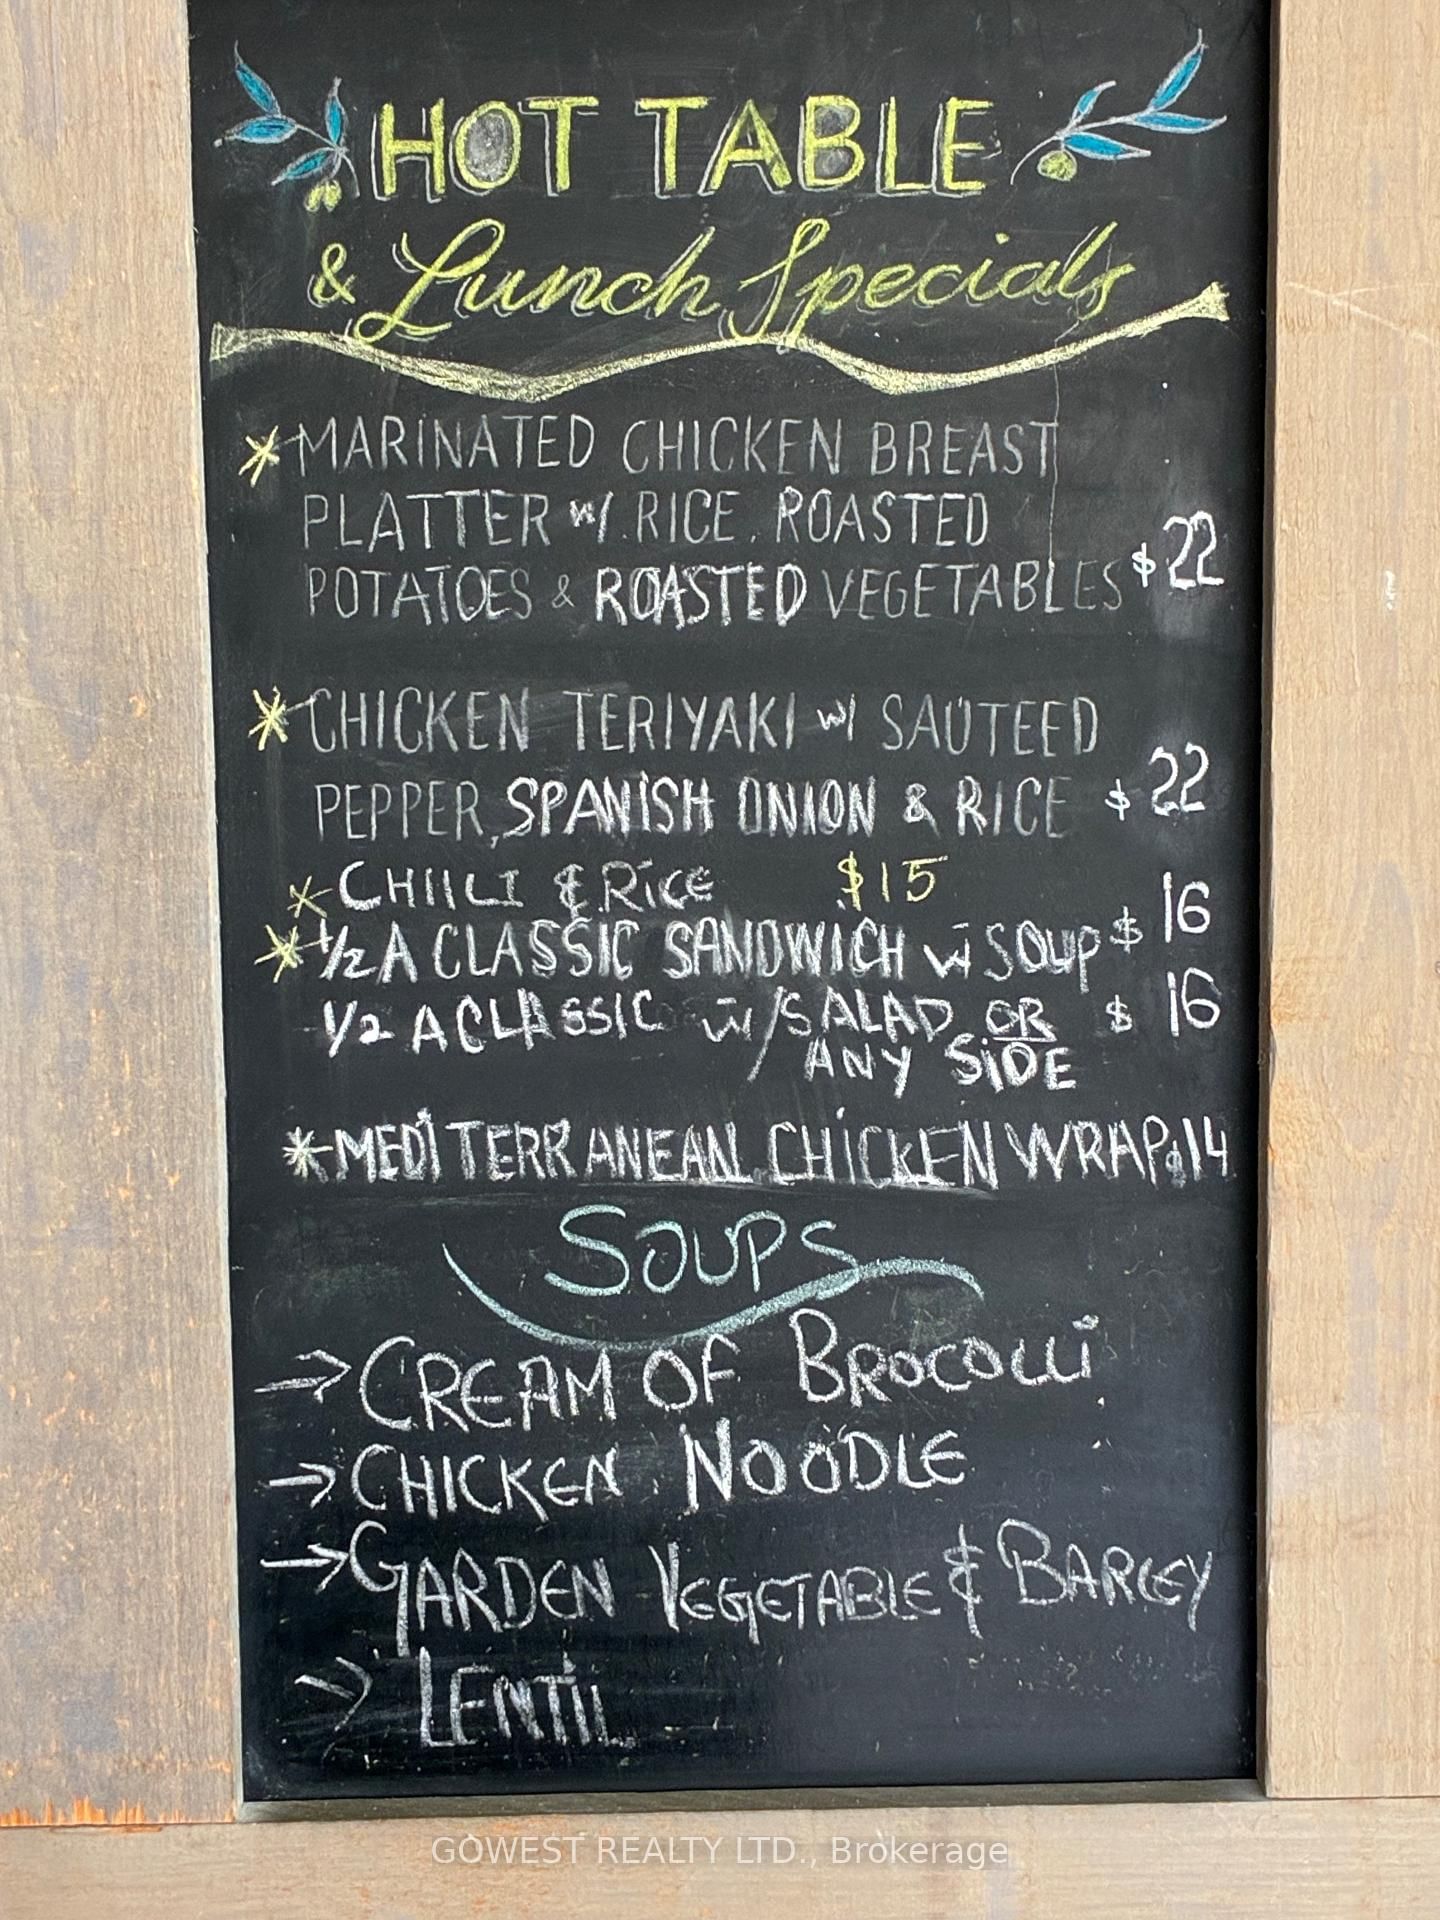 HOT TABLE
& Lunch Specials
* MARINATED CHICKEN BREAST
PLATTER w/ RICE, ROASTED
POTATOES & ROASTED VEGETABLES $22
* CHICKEN TERIYAKI w/ SAUTEED
PEPPER, SPANISH ONION & RICE $22
* CHIILI & RICE $15
* 1/2 A CLASSIC SANDWICH w SOUP $ 16
1/2 A CLASSIC w/ SALAD OR $ 16
ANY SIDE
* MEDITERRANEAN CHICKEN WRAP $14
SOUPS
→ CREAM OF BROCOLLI
→ CHICKEN NOODLE
→ GARDEN VEGETABLE & BARLEY
→ LENTIL
GOWEST REALTY LTD., Brokerage